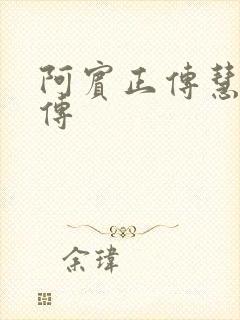 阿賓正傳慧
傳
余瑋